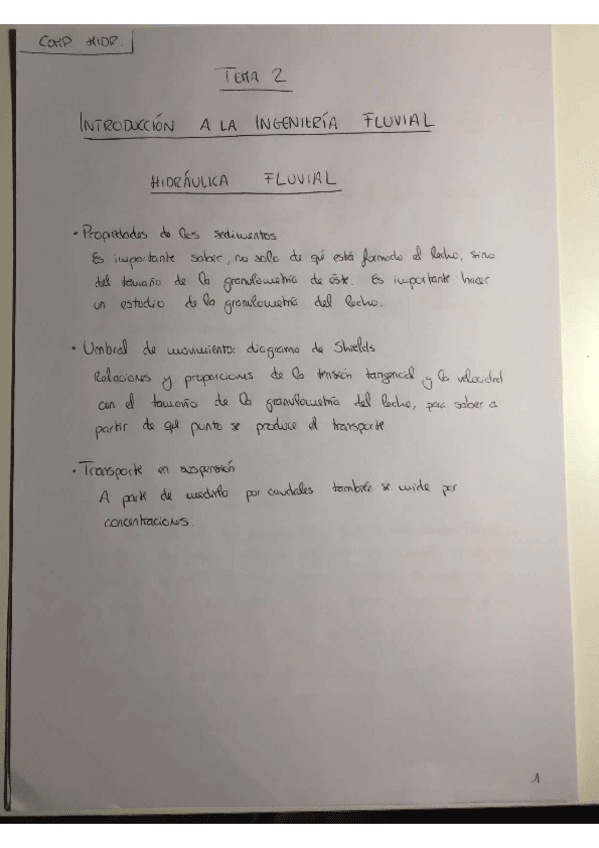 COMP HIDR.
TEMA 2
INTRODUCCIÓN A LA INGENIERÍA FLUVIAL
HIDRÁULICA FLUVIAL
· Propiedades de los sedimentos
Es importante saber, no solo de qué está formado el lecho, sino
del tamaño de la granulometría de éste. Es importante hacer
un estudio de la granulometría del lecho.
· Umbral de movimiento: diagrama de Shields
Relaciones y proporciones de la tensión tangencial y la velocidad
con el tamaño de la granulometría del lecho, para saber a
partir de qué punto se produce el transporte
· Transporte en suspensión
A parte de medirlo por caudales también se mide por
concentraciones.
1